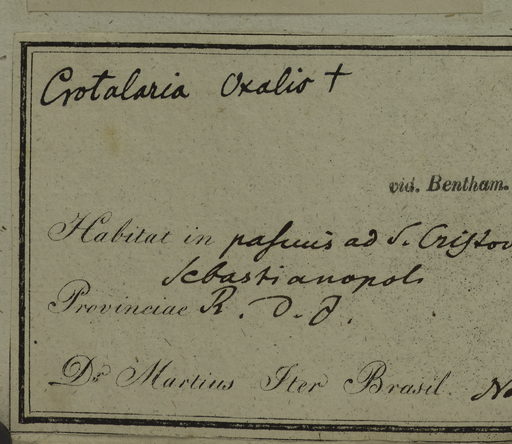 Crotalaria Oxalis +
vid. Bentham.
Habitat in pascuis ad S. Cristov
Sebastianopoli
Provinciae R. D. J.
Dr Martius Iter Brasil. No